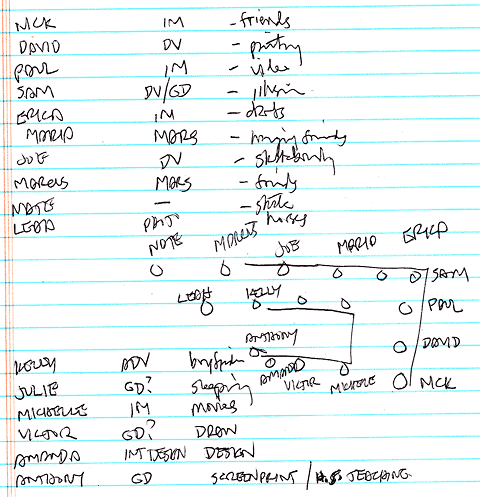 NICK IM - friends
DAVID DV - painting
PAUL IM - video
SAM DV/GD -
ERICA IM -
MARIO MARS - friends
JOE DV -
MARCUS MARS - family
NATE — - skate
LEAH PAT. horses
NATE MARCUS JOE MARIO ERICA
SAM
LEAH KELLY PAUL
ANTHONY DAVID
AMANDA VICTOR MICHELLE NICK
KELLY ADV
JULIE GD? sleeping
MICHELLE IM movies
VICTOR GD? DRAW
AMANDA INT DESIGN DESIGN
ANTHONY GD SCREENPRINT / H.S. TEACHING